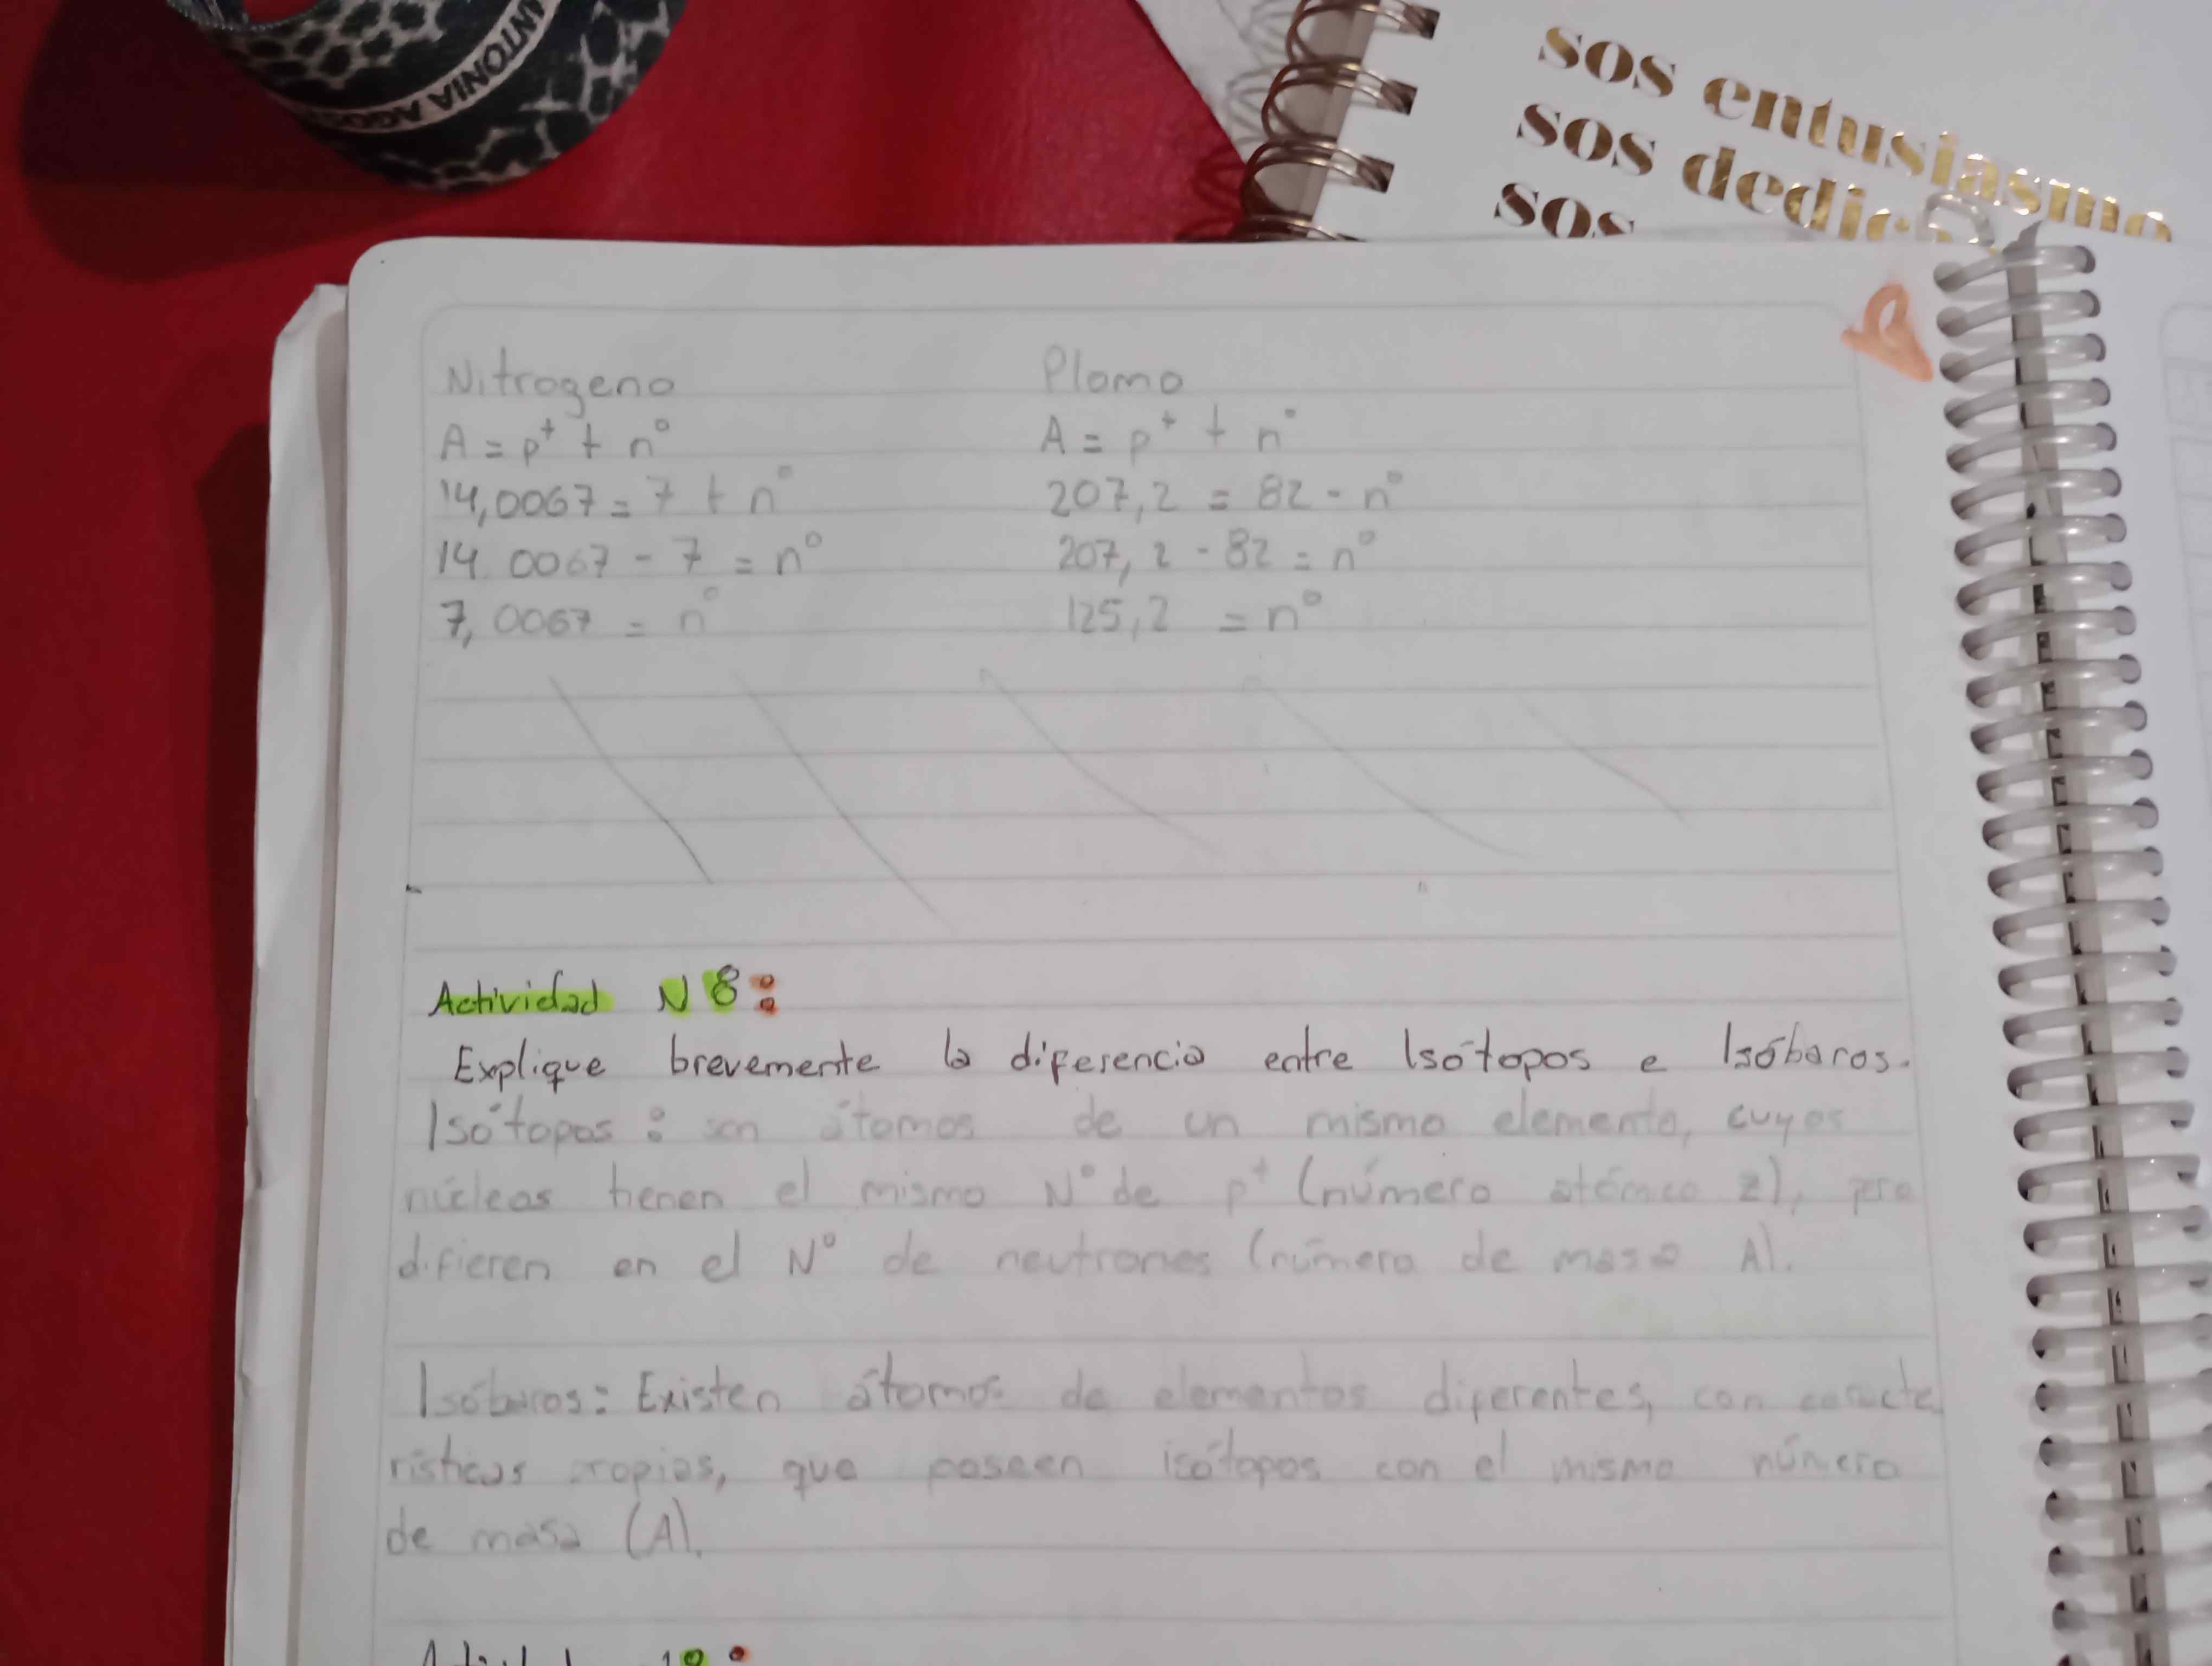 ANTONIA AGOS
sos entusiasmo
sos dedic
sos
Nitrogeno
A = p⁺ + n°
14,0067 = 7 + n°
14.0067 - 7 = n°
7,0067 = n°
Plomo
A = p⁺ + n°
207,2 = 82 - n°
207,2 - 82 = n°
125,2 = n°
Actividad N 8:
Explique brevemente la diferencia entre Isótopos e Isóbaros.
Isótopos: son átomos de un mismo elemento, cuyos
núcleos tienen el mismo N° de p⁺ (número atómico z), pero
difieren en el N° de neutrones (número de masa A).
Isóbaros: Existen átomos de elementos diferentes, con caracte
rísticas propias, que poseen isótopos con el mismo número
de masa (A).